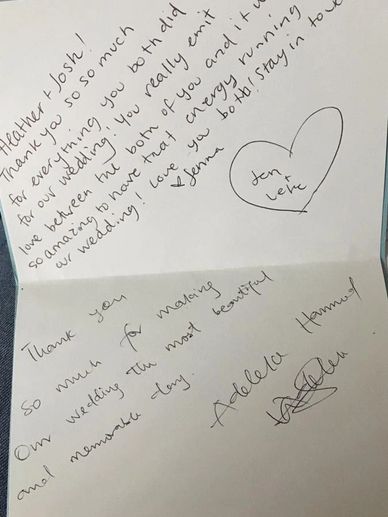 Heather + Josh!
Thank you so so much
for everything you both did
for our wedding! You really emit
love between the both of you and it w
so amazing to have that energy running
our wedding!! Love you both! Stay in to
♥ Jenna
Jen
+
Thank you
so much for making
Our wedding the most beautiful
and memorable day.